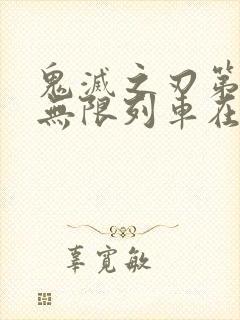 鬼滅之刃第
無限列車在
辜寬敏